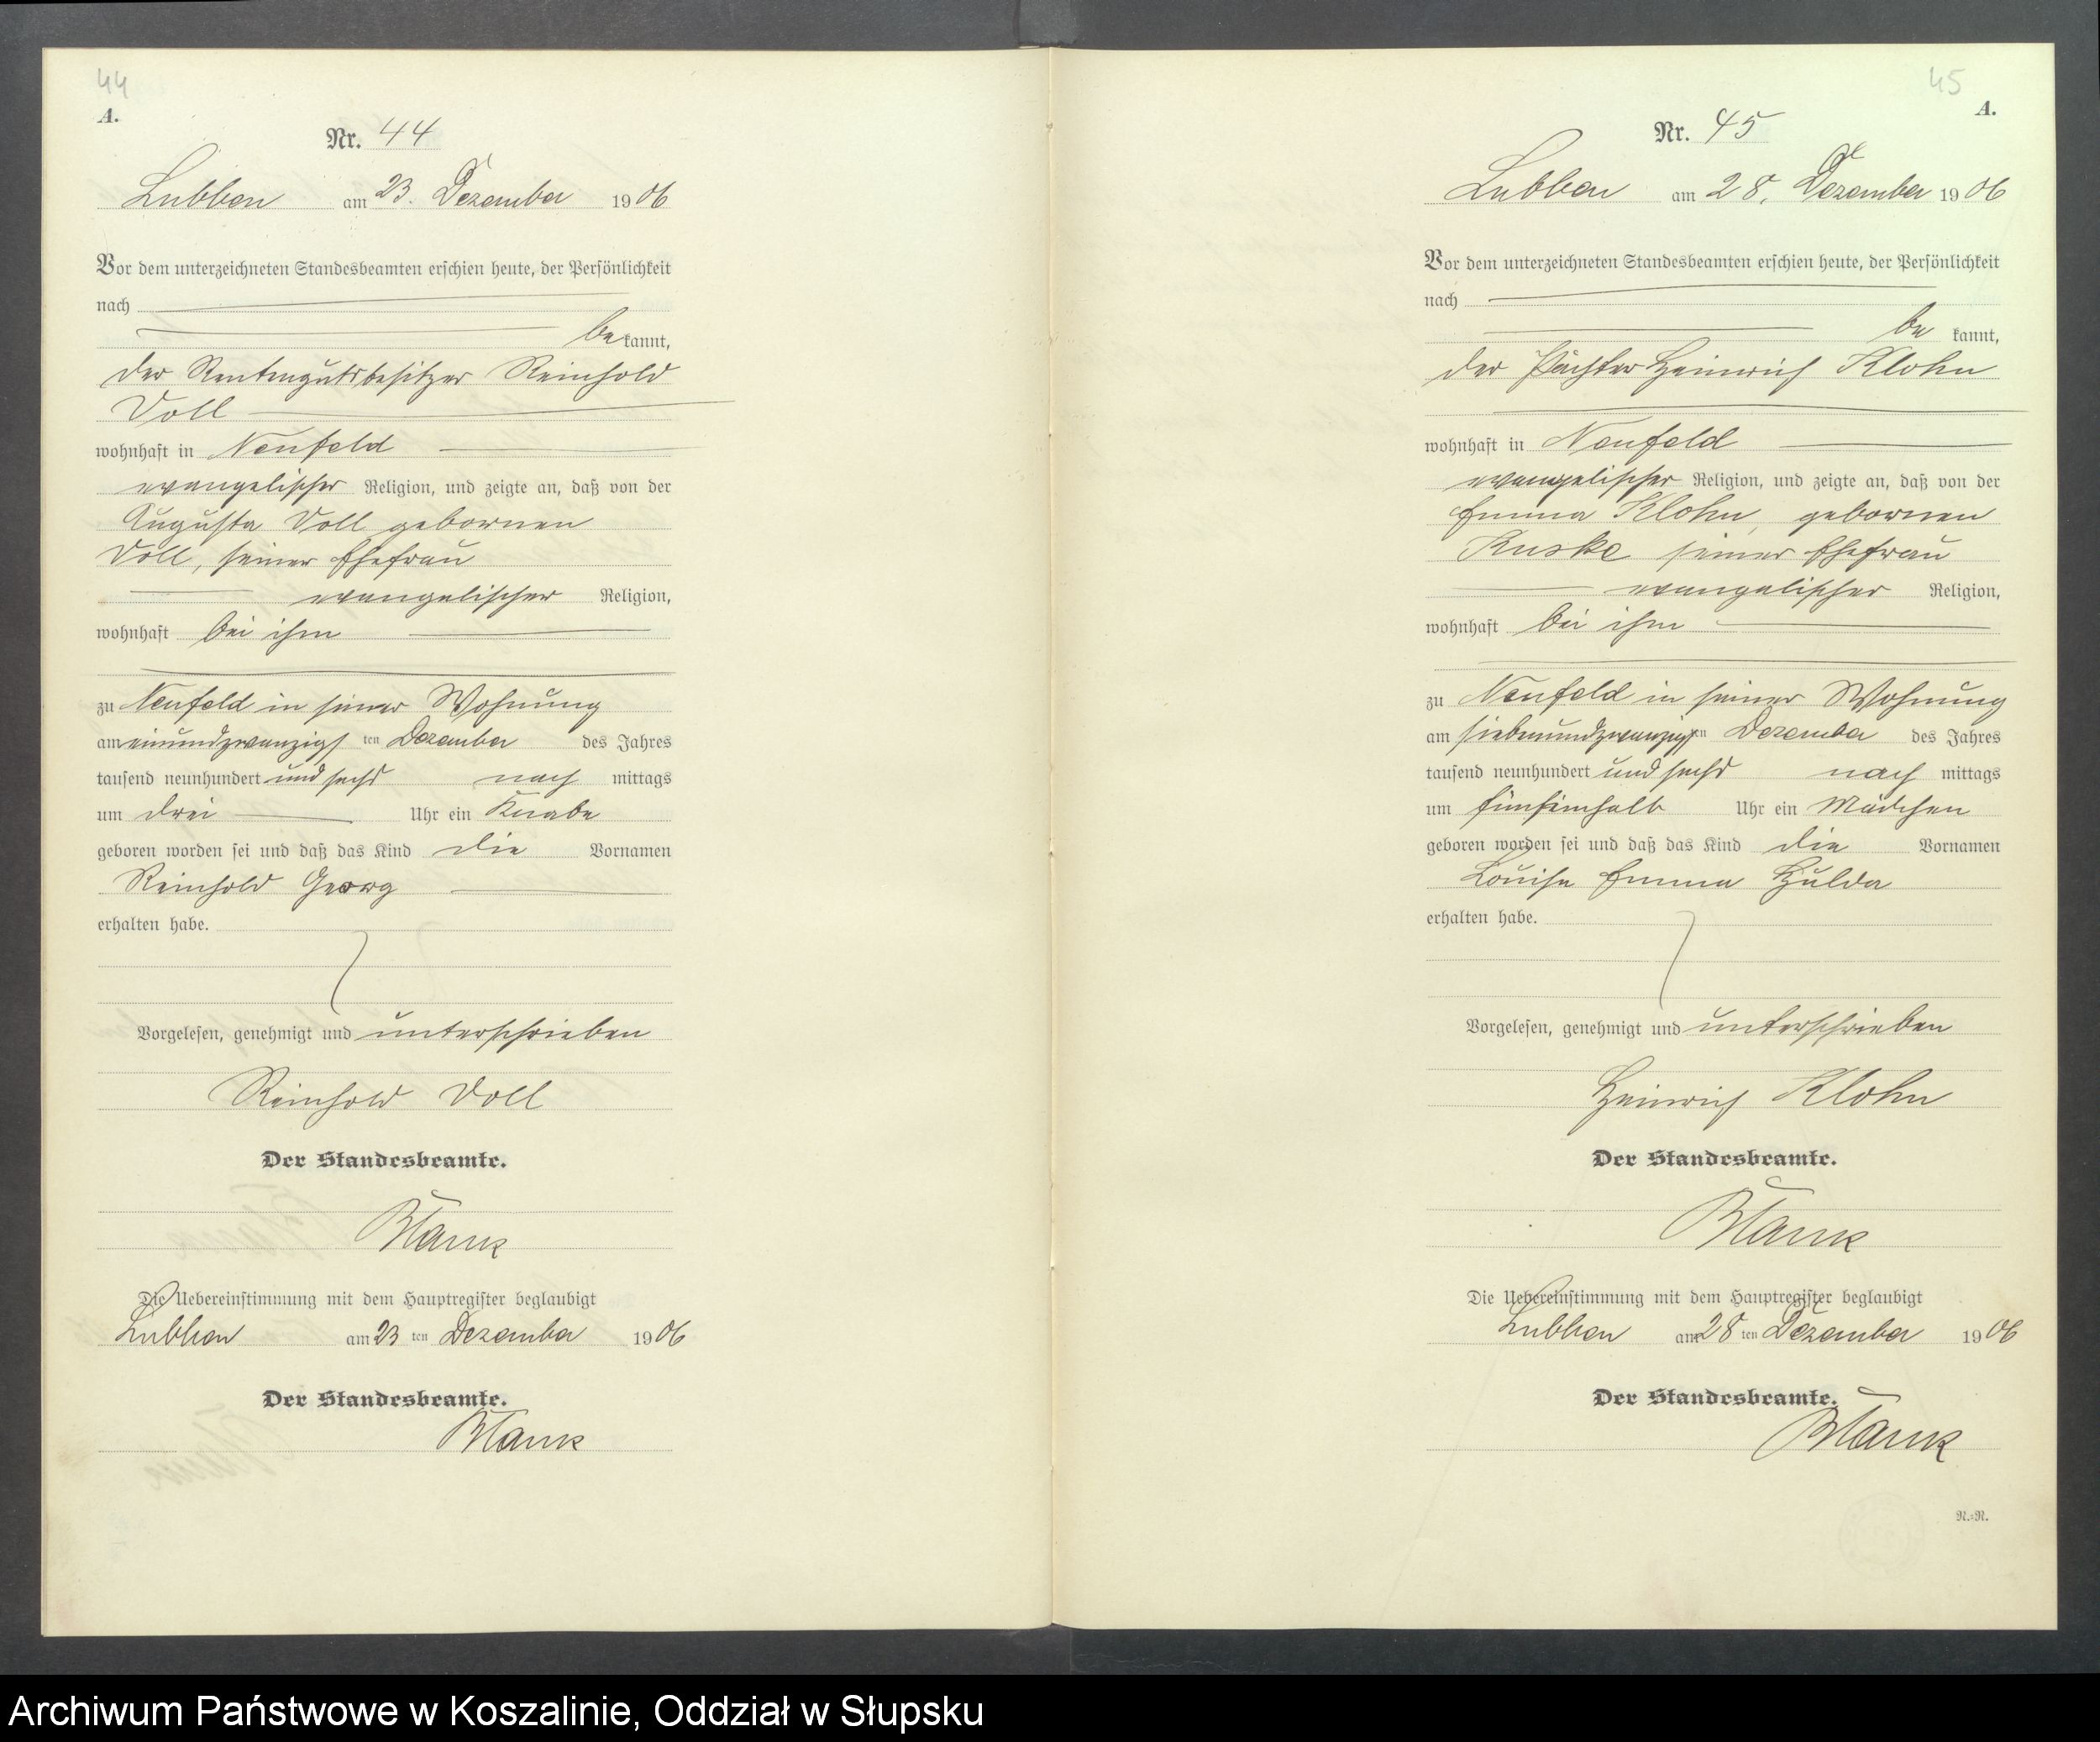 44
A.
Nr. 44
Lubben am 23. Dezember 1906
Vor dem unterzeichneten Standesbeamten erschien heute, der Persönlichkeit
nach
be kannt,
der Rentengutsbesitzer Reinhold
Voll
wohnhaft in Neufeld
evangelischer Religion, und zeigte an, daß von der
Augusta Voll gebornen
Voll, seiner Ehefrau
evangelischer Religion,
wohnhaft bei ihm
zu Neufeld in seiner Wohnung
am einundzwanzigsten Dezember des Jahres
tausend neunhundert und sechs nach mittags
um drei Uhr ein Knabe
geboren worden sei und daß das Kind die Vornamen
Reinhold Georg
erhalten habe.
Vorgelesen, genehmigt und unterschrieben
Reinhold Voll
Der Standesbeamte.
Blank
Die Uebereinstimmung mit dem Hauptregister beglaubigt
Lubben am 23 ten Dezember 1906
Der Standesbeamte.
Blank
45
A.
Nr. 45
Lubben am 28. Dezember 1906
Vor dem unterzeichneten Standesbeamten erschien heute, der Persönlichkeit
nach
be kannt,
der Pächter Heinrich Klohn
wohnhaft in Neufeld
evangelischer Religion, und zeigte an, daß von der
Emma Klohn, gebornen
Kuske seiner Ehefrau
evangelischer Religion,
wohnhaft bei ihm
zu Neufeld in seiner Wohnung
am siebenundzwanzigsten Dezember des Jahres
tausend neunhundert und sechs nach mittags
um fünfeinhalb Uhr ein Mädchen
geboren worden sei und daß das Kind die Vornamen
Louise Emma Hulda
erhalten habe.
Vorgelesen, genehmigt und unterschrieben
Heinrich Klohn
Der Standesbeamte.
Blank
Die Uebereinstimmung mit dem Hauptregister beglaubigt
Lubben am 28 ten Dezember 1906
Der Standesbeamte.
Blank
N.=N.
Archiwum Państwowe w Koszalinie, Oddział w Słupsku